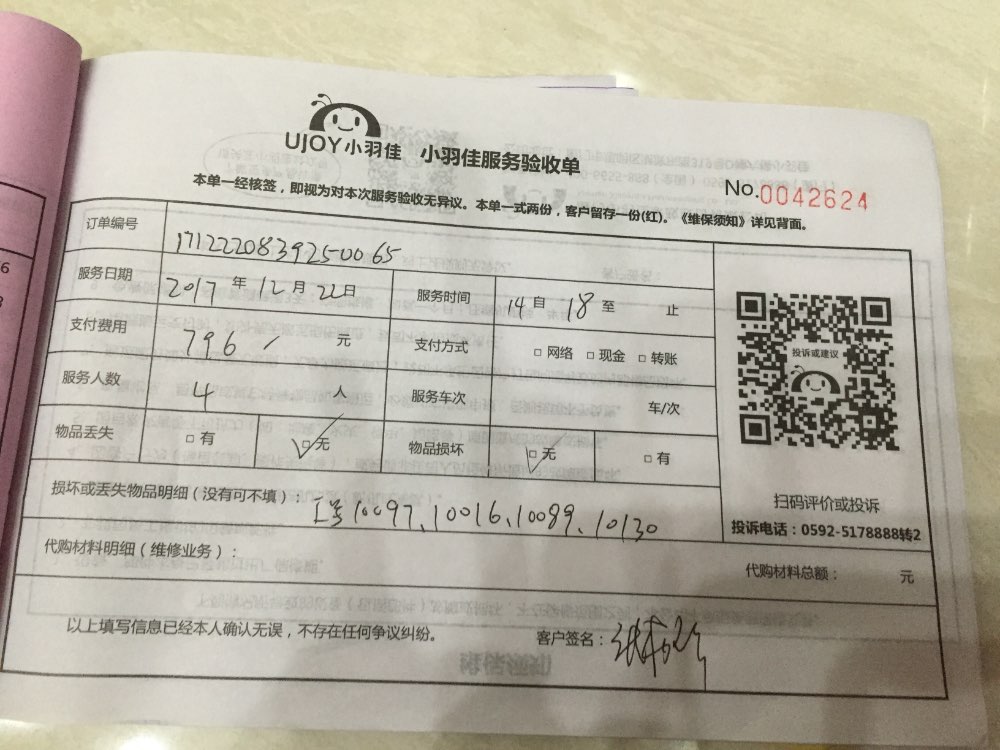 UJOY小羽佳 小羽佳服务验收单
No.0042624
本单一经核签，即视为对本次服务验收无异议。本单一式两份，客户留存一份(红)。《维保须知》详见背面。
订单编号 17122208392500 65
服务日期 2017 年 12 月 22 日 服务时间 14 自 18 至 止
支付费用 796 元 支付方式 □ 网络 □ 现金 □ 转账
服务人数 4 人 服务车次 车/次
物品丢失 □ 有 □ 无 物品损坏 □ 无 □ 有
投诉或建议
扫码评价或投诉
投诉电话：0592-5178888转2
损坏或丢失物品明细（没有可不填）： 工号10097、10016、10089、10130
代购材料明细（维修业务）： 代购材料总额： 元
以上填写信息已经本人确认无误，不存在任何争议纠纷。 客户签名：